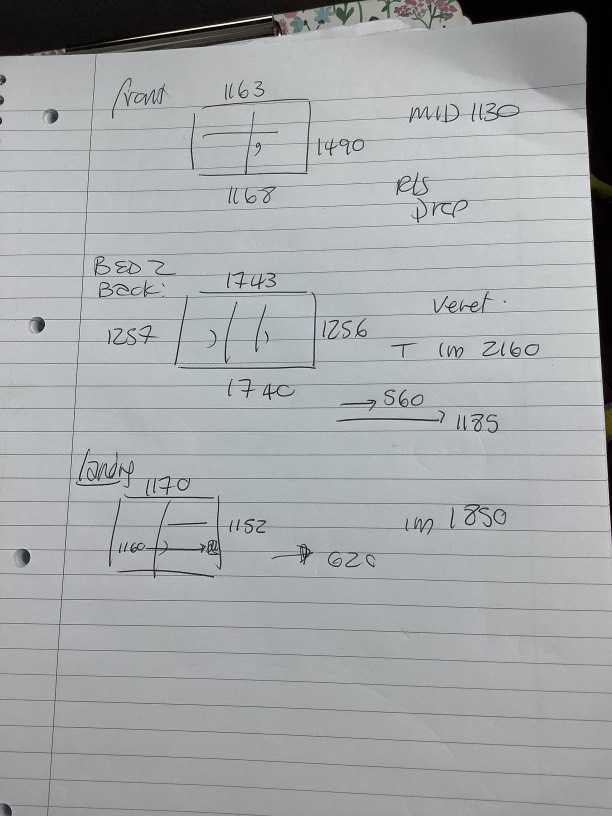 Front 1163
MID 1130
1490
1168
Rts
Drop
BED 2
Back: 1743
Venet.
1257 1256
T im 2160
1740
→ 560
→ 1185
Landg
1170
1152
im 1850
1160 →
→ 620